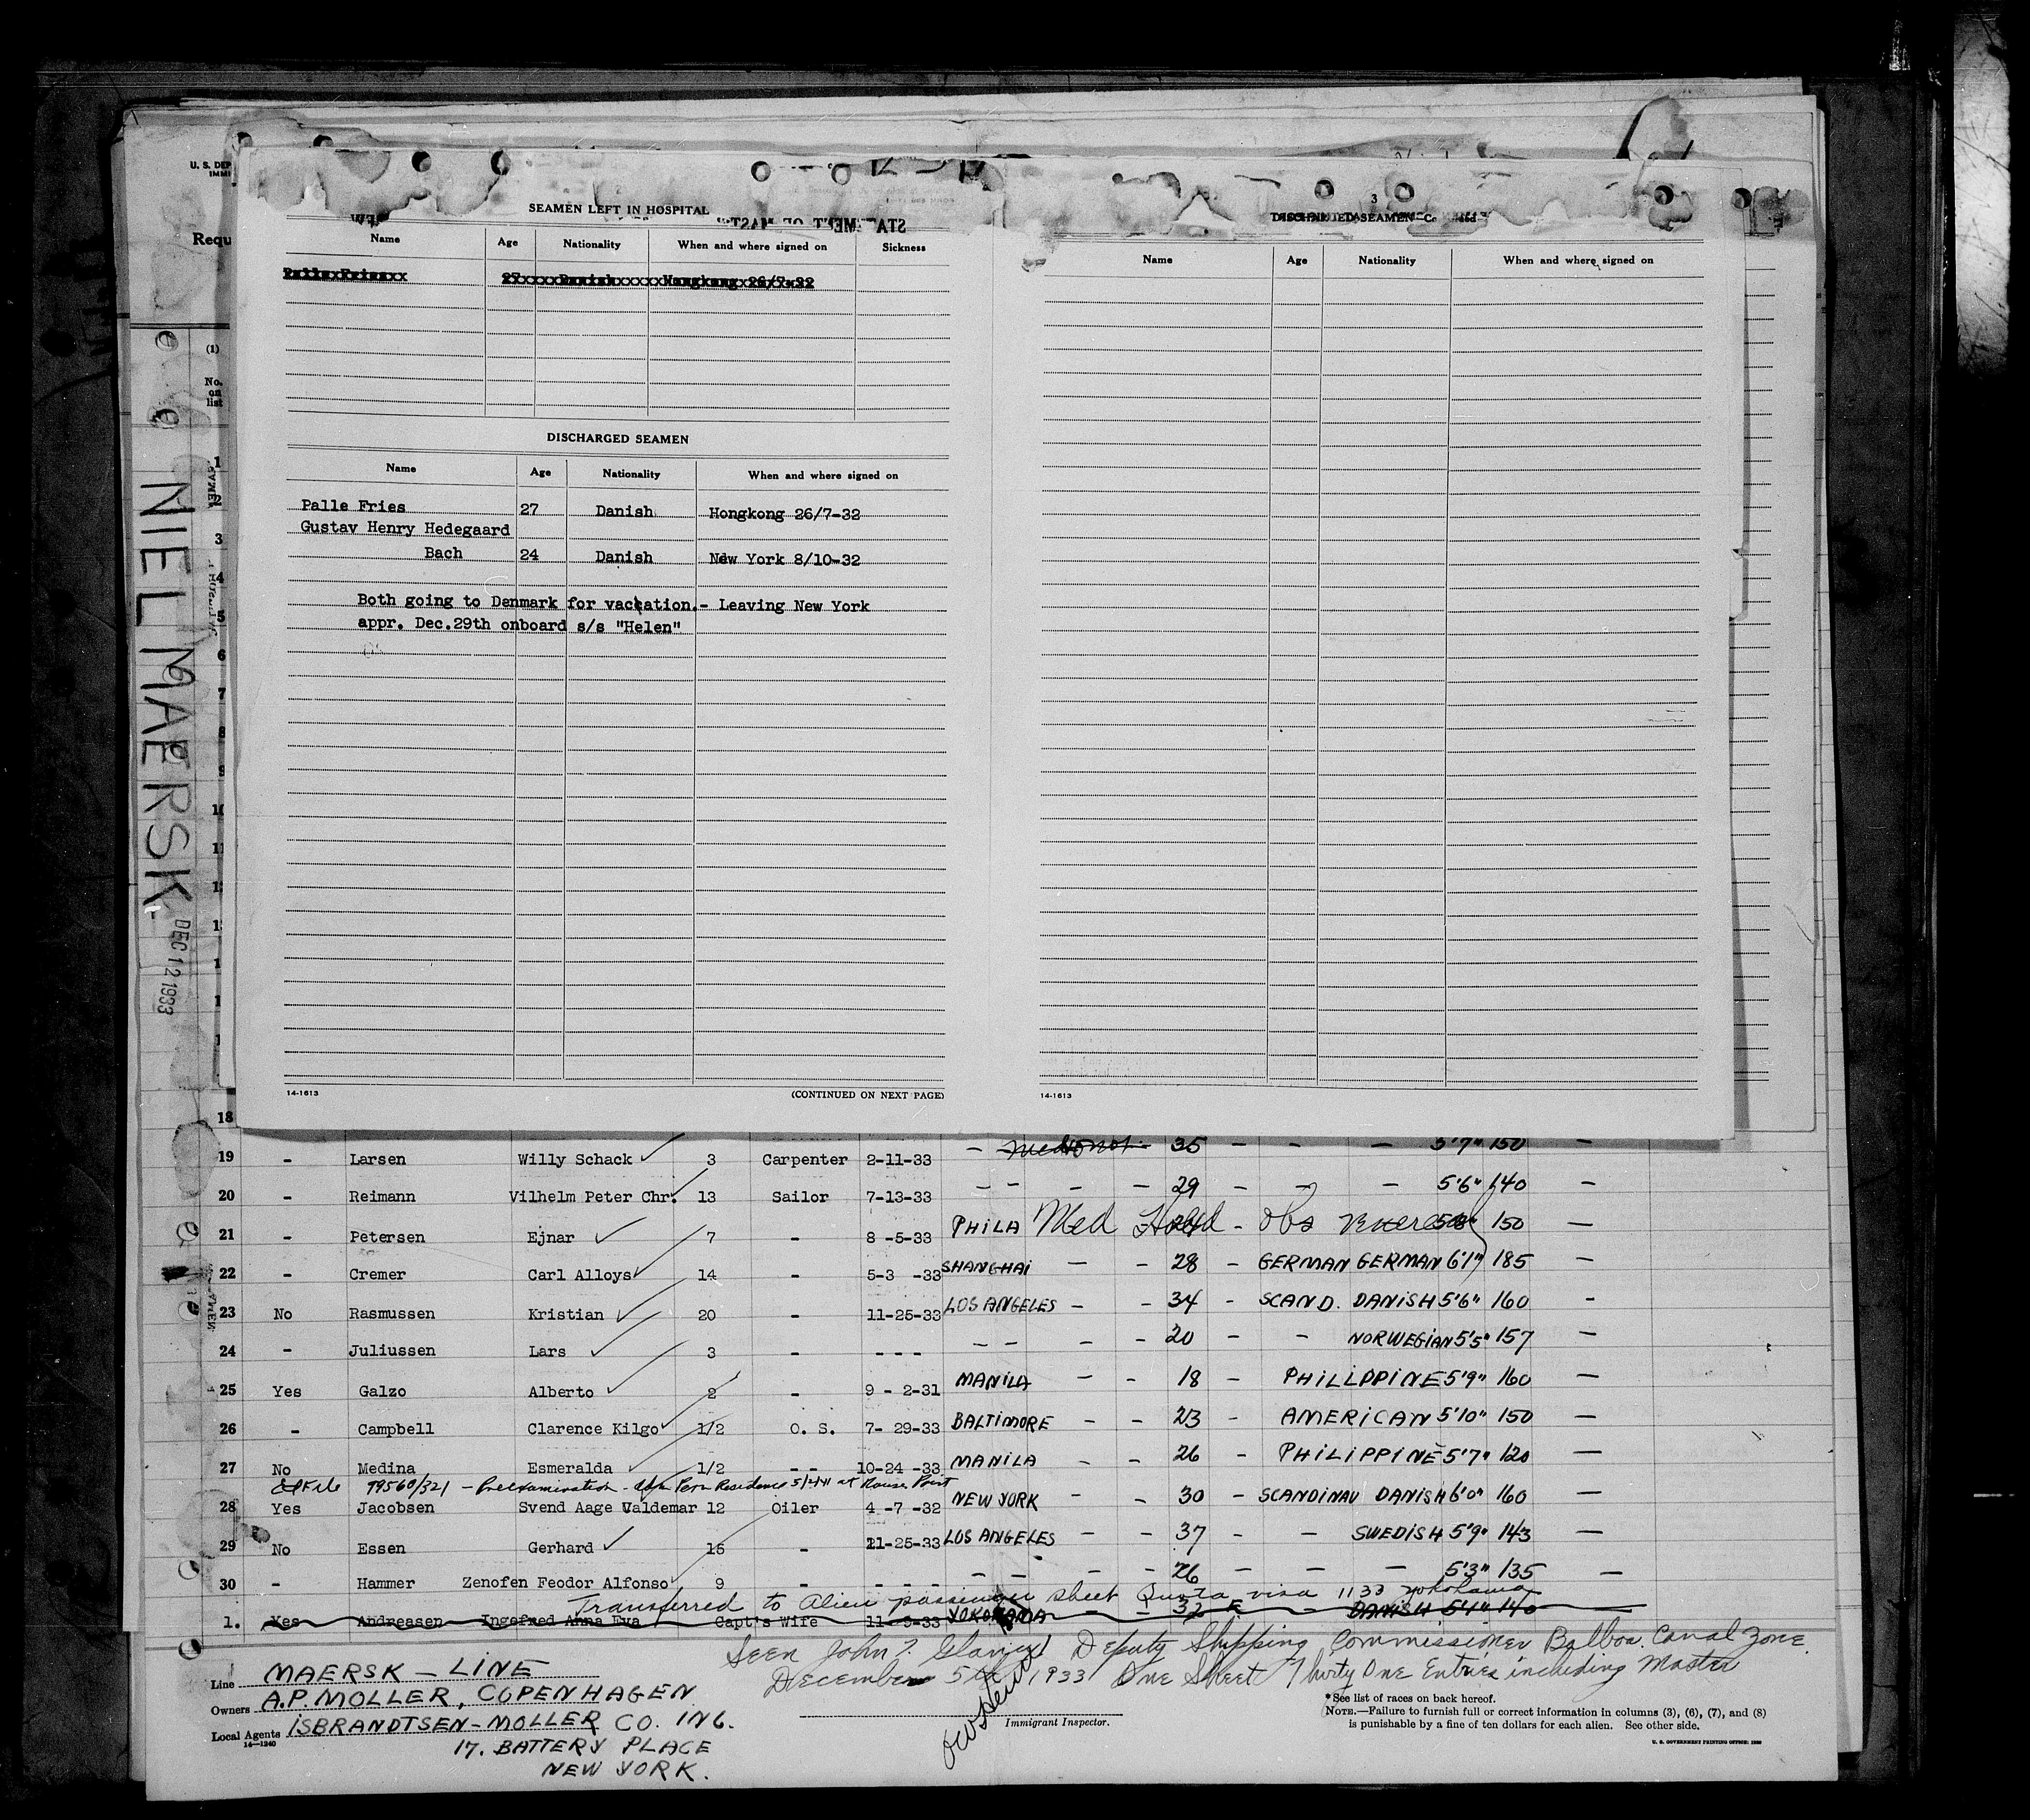 U. S. DEP
IMMI
Requ
SEAMEN LEFT IN HOSPITAL
Name Age Nationality When and where signed on Sickness
Palle Fries 27 Danish Hongkong 26/7-32
DISCHARGED SEAMEN
Name Age Nationality When and where signed on
Palle Fries 27 Danish Hongkong 26/7-32
Gustav Henry Hedegaard
Bach 24 Danish New York 8/10-32
Both going to Denmark for vacation.- Leaving New York
appr. Dec.29th onboard s/s "Helen"
14-1613 (CONTINUED ON NEXT PAGE)
3
DISCHARGED SEAMEN
Name Age Nationality When and where signed on
14-1613
(1)
No.
on
list
1
2
3
4
5
6
7
8
9
10
11
NIEL MAERSK
DEC 12 1933
18
35 - - - 5'7" 150 -
19 - Larsen Willy Schack 3 Carpenter 2-11-33
20 - Reimann Vilhelm Peter Chr. 13 Sailor 7-13-33 - - - - 29 - - - 5'6" 140 -
21 - Petersen Ejnar 7 - 8 -5-33 PHILA Med Hold - Obs Venereal 150 -
22 - Cremer Carl Alloys 14 - 5-3 -33 SHANGHAI - - 28 - GERMAN GERMAN 6'1" 185 -
23 No Rasmussen Kristian 20 - 11-25-33 LOS ANGELES - - 34 - SCAND. DANISH 5'6" 160 -
24 - Juliussen Lars 3 - - - - - - - - 20 - - NORWEGIAN 5'5" 157 -
25 Yes Galzo Alberto 2 - 9 - 2-31 MANILA - - 18 - PHILIPPINE 5'9" 160 -
26 - Campbell Clarence Kilgo 1/2 O. S. 7- 29-33 BALTIMORE - - 23 - AMERICAN 5'10" 150 -
27 No Medina Esmeralda 1/2 - - 10-24 -33 MANILA - - 26 - PHILIPPINE 5'7" 120 -
99560/321 - Preexamination - Perm Residence 5/1441 at Rouses Point
28 Yes Jacobsen Svend Aage Valdemar 12 Oiler 4 -7 -32 NEW YORK - - 30 - SCANDINAV DANISH 6'0" 160 -
29 No Essen Gerhard 15 - 11-25-33 LOS ANGELES - - 37 - - SWEDISH 5'9" 143 -
30 - Hammer Zenofen Feodor Alfonso 9 - - - - - - - - 26 - - - 5'3" 135 -
Transferred to Alien passenger sheet Quota visa 1133 Yokohama
1. Yes Andreasen Ingefred Anna Eva Capt's Wife 11- 9-33 YOKOHAMA - - 32 F - - DANISH 5'1" 140 -
Seen John Deputy Shipping Commissioner Balboa. Canal Zone.
December 5th 1933 One Sheet Thirty One Entries including Master
Line MAERSK - LINE
Owners A.P. MOLLER, COPENHAGEN
Local Agents ISBRANDTSEN-MOLLER CO. INC.
14-1240
17. BATTERY PLACE
NEW YORK.
Immigrant Inspector.
*See list of races on back hereof.
NOTE.—Failure to furnish full or correct information in columns (3), (6), (7), and (8)
is punishable by a fine of ten dollars for each alien. See other side.
U. S. GOVERNMENT PRINTING OFFICE: 1930